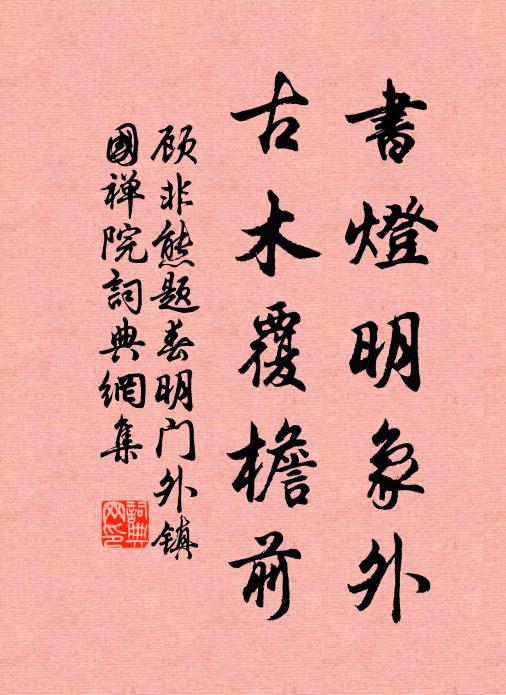 書燈明象外
古木覆檐前
顾非熊题春明门外镇
國禅院詞典網集
詞典
网印